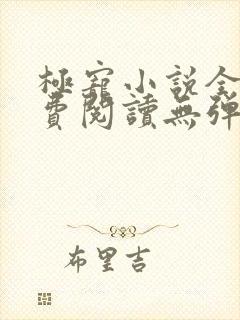 極寵小說全
費閱讀無彈
布里吉